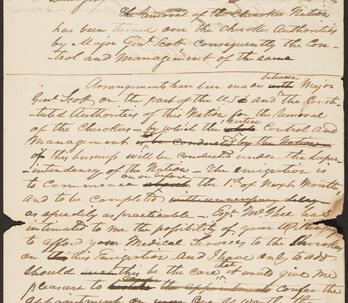 The removal of the Cherokee Nation
has been turned over the Cherokee Authorities
by Major Genl. Scott Consequently the Con-
trol and management of the same
between
Arrangements have been made with Major
Genl Scott on the part of the U.S. & and The Consti-
tuted Authorities of this Nation for the removal
entire
of the Cherokees - by which the whole Control and
Management to be conducted by the Nation
of this business will be conducted under the Super-
intendency of the Nation - The emigration is
on or before
to Commence about the 1st of Septr
and to be completed
as speedily as practicable - Capt McGhee has
intimated to me the possibility of your
to afford your Medical Services to the Cherokees
on this Emigration and I have only to add
should this be the case, it would give me
pleasure to confer the
appointment on you